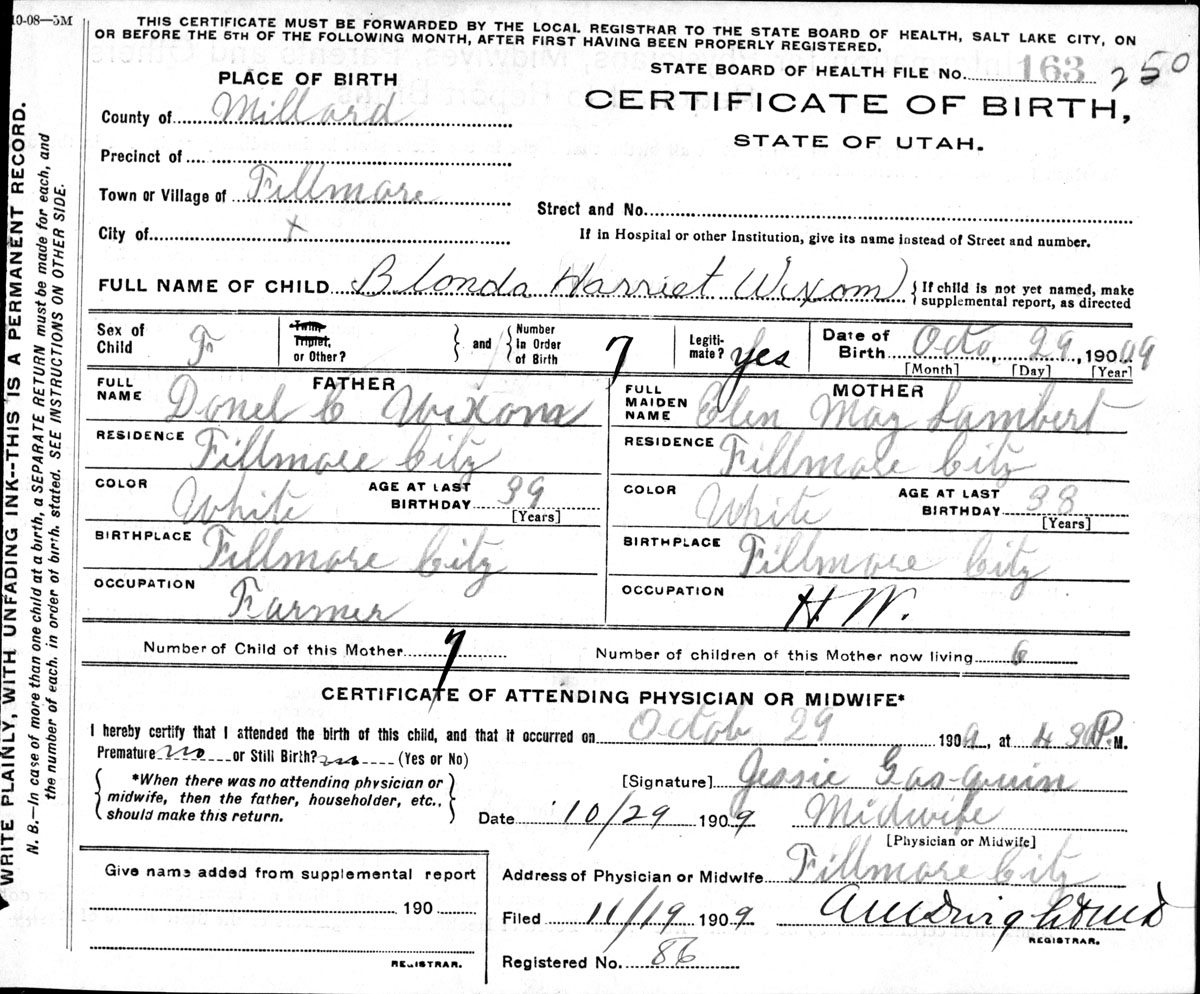 10-08—5M
THIS CERTIFICATE MUST BE FORWARDED BY THE LOCAL REGISTRAR TO THE STATE BOARD OF HEALTH, SALT LAKE CITY, ON
OR BEFORE THE 5TH OF THE FOLLOWING MONTH, AFTER FIRST HAVING BEEN PROPERLY REGISTERED.
PLACE OF BIRTH
STATE BOARD OF HEALTH FILE No. 163 250
County of Millard
CERTIFICATE OF BIRTH,
STATE OF UTAH.
Precinct of
Town or Village of Fillmore
Street and No.
City of x
If in Hospital or other Institution, give its name instead of Street and number.
FULL NAME OF CHILD Blonda Harriet Wixom { If child is not yet named, make
supplemental report, as directed
Sex of Child F Twin, Triplet, or Other? } and { Number In Order of Birth 7 Legiti-mate? yes Date of Birth Octo, 29, 190 09
[Month] [Day] [Year]
FATHER
MOTHER
FULL NAME Donel C Wixom
FULL MAIDEN NAME Elen May Lambert
RESIDENCE Fillmore City
RESIDENCE Fillmore City
COLOR White AGE AT LAST BIRTHDAY 39 [Years]
COLOR White AGE AT LAST BIRTHDAY 38 [Years]
BIRTHPLACE Fillmore City
BIRTHPLACE Fillmore City
OCCUPATION Farmer
OCCUPATION H W.
Number of Child of this Mother 7 Number of children of this Mother now living 6
CERTIFICATE OF ATTENDING PHYSICIAN OR MIDWIFE*
I hereby certify that I attended the birth of this child, and that it occurred on Octob 29 1909, at 4 30 P.M.
Premature no or Still Birth? no (Yes or No)
*When there was no attending physician or
midwife, then the father, householder, etc.,
should make this return.
[Signature] Jessie Gas-quin
Date 10/29 1909 Midwife
[Physician or Midwife]
Give name added from supplemental report
190
REGISTRAR.
Address of Physician or Midwife Fillmore City
Filed 11/19 1909
REGISTRAR.
Registered No. 86
WRITE PLAINLY, WITH UNFADING INK--THIS IS A PERMANENT RECORD.
N. B.—In case of more than one child at a birth, a SEPARATE RETURN must be made for each, and
the number of each, in order of birth, stated. SEE INSTRUCTIONS ON OTHER SIDE.